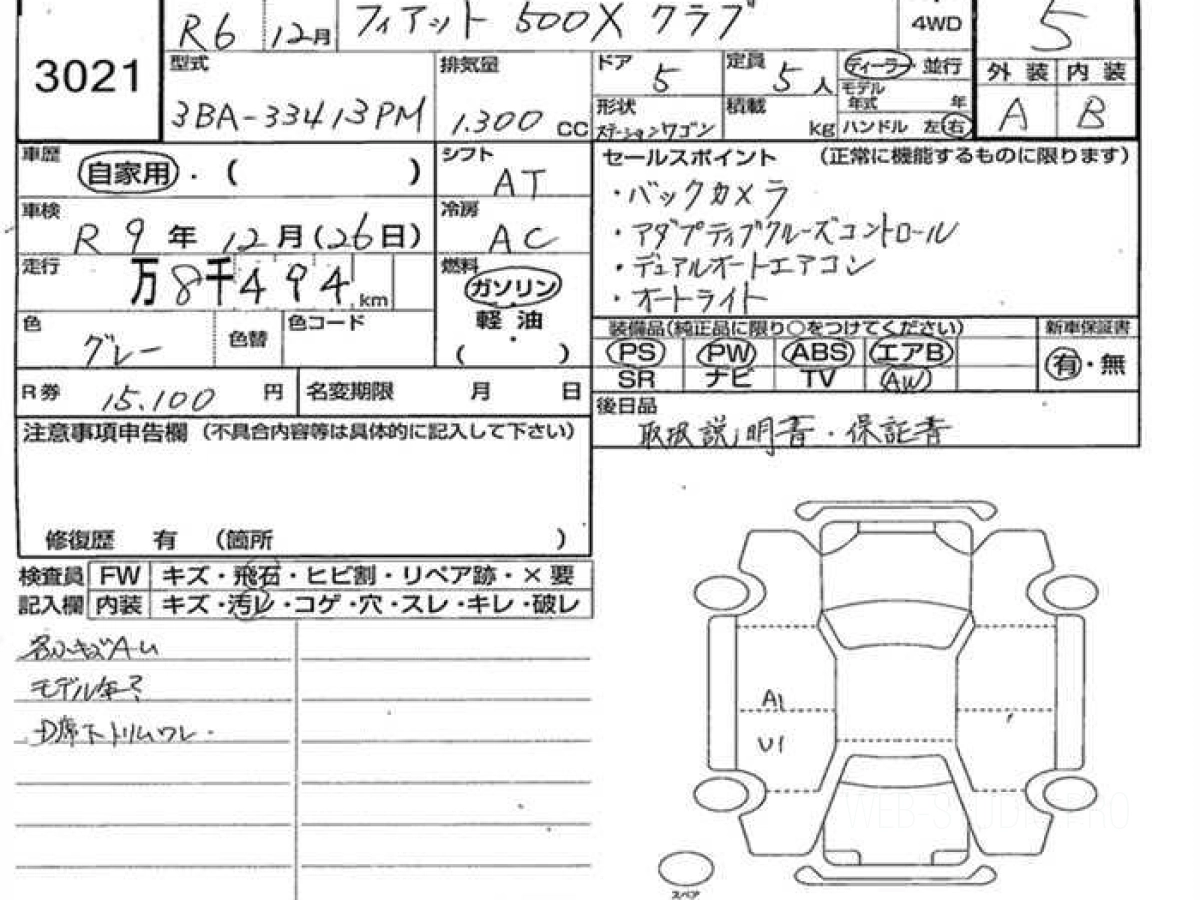 3021
R6 12月 フィアット 500X クラブ 4WD 5
型式 3BA-33413PM
排気量 1.300 CC
ドア 5 定員 5人 ディーラー 並行
モデル年式 年
形状 ステーションワゴン 積載 kg ハンドル 左 右
外装 内装
A B
車歴 自家用・( )
シフト AT
車検 R 9年 12月(26日)
冷房 AC
走行 万8千494 km
燃料 ガソリン・軽油 ( )
色 グレー 色替 色コード
R券 15.100 円 名変期限 月 日
セールスポイント (正常に機能するものに限ります)
・バックカメラ
・アダプティブクルーズコントロール
・デュアルオートエアコン
・オートライト
装備品(純正品に限り○をつけてください) 新車保証書
PS PW ABS エアB 有・無
SR ナビ TV AW
後日品
取扱説明書・保証書
注意事項申告欄 (不具合内容等は具体的に記入して下さい)
修復歴 有 (箇所 )
検査員 FW キズ・飛石・ヒビ割・リペア跡・×要
記入欄 内装 キズ・汚レ・コゲ・穴・スレ・キレ・破レ
モデル年?
D席下トリムワレ
A1
U1
スペア
WEB-STUDIO.PRO